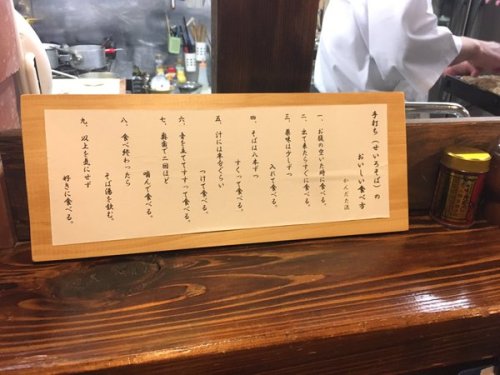 手打ち（せいろそば）の
おいしい食べ方
かんだた流
一、お腹の空いた時に食べる。
二、出て来たらすぐに食べる。
三、薬味は少しずつ
入れて食べる。
四、そばは八本ずつ
すくって食べる。
五、汁には半分くらい
つけて食べる。
六、音を立ててすすって食べる。
七、奥歯で二回ほど
噛んで食べる。
八、食べ終わったら
そば湯を飲む。
九、以上を気にせず
好きに食べる。